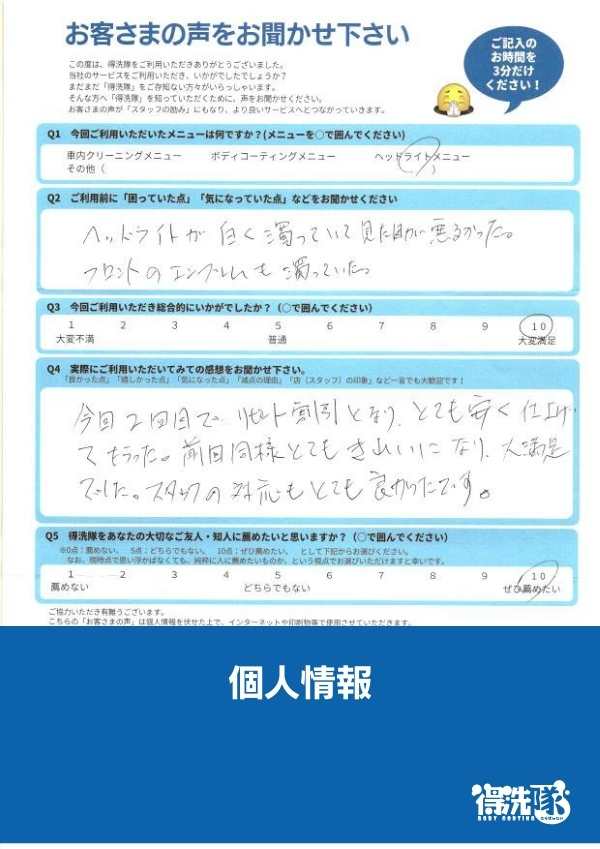 お客さまの声をお聞かせ下さい
この度は、得洗隊をご利用いただきありがとうございました。
当社のサービスをご利用いただき、いかがでしたでしょうか？
まだまだ「得洗隊」をご存知ない方々がいらっしゃいます。
そんな方へ「得洗隊」を知っていただくために、声をお聞かせください。
お客さまの声が「スタッフの励み」にもなり、より良いサービスへとつながっていきます。
ご記入の
お時間を
3分だけ
ください！
Q1 今回ご利用いただいたメニューは何ですか？(メニューを○で囲んでください)
車内クリーニングメニュー ボディコーティングメニュー ヘッドライトメニュー
その他（ ）
Q2 ご利用前に「困っていた点」「気になっていた点」などをお聞かせください
ヘッドライトが白く濁っていて見た目が悪るかった。
フロントのエンブレムも濁っていた。
Q3 今回ご利用いただき総合的にいかがでしたか？（○で囲んでください）
1 2 3 4 5 6 7 8 9 10
大変不満 普通 大変満足
Q4 実際にご利用いただいてみての感想をお聞かせ下さい。
「良かった点」「嬉しかった点」「気になった点」「減点の理由」「店（スタッフ）の印象」など一言でも大歓迎です！
今回2回目でリピート割引となり、とても安く仕上げ
てもらった。前回同様とてもきれいになり、大満足
でした。スタッフの対応もとても良かったです。
Q5 得洗隊をあなたの大切なご友人・知人に薦めたいと思いますか？（○で囲んでください）
※0点：薦めない、 5点：どちらでもない、 10点：ぜひ薦めたい、 として下記からお選びください。
なお、現時点で思い浮かばなくても、純粋に人に薦めたいものか、という視点でお選びいただけますと幸いです。
1 2 3 4 5 6 7 8 9 10
薦めない どちらでもない ぜひ薦めたい
ご協力いただき有難うございます。
こちらの「お客さまの声」は個人情報を伏せた上で、インターネットや印刷物等で使用させていただきます。
個人情報
得洗隊